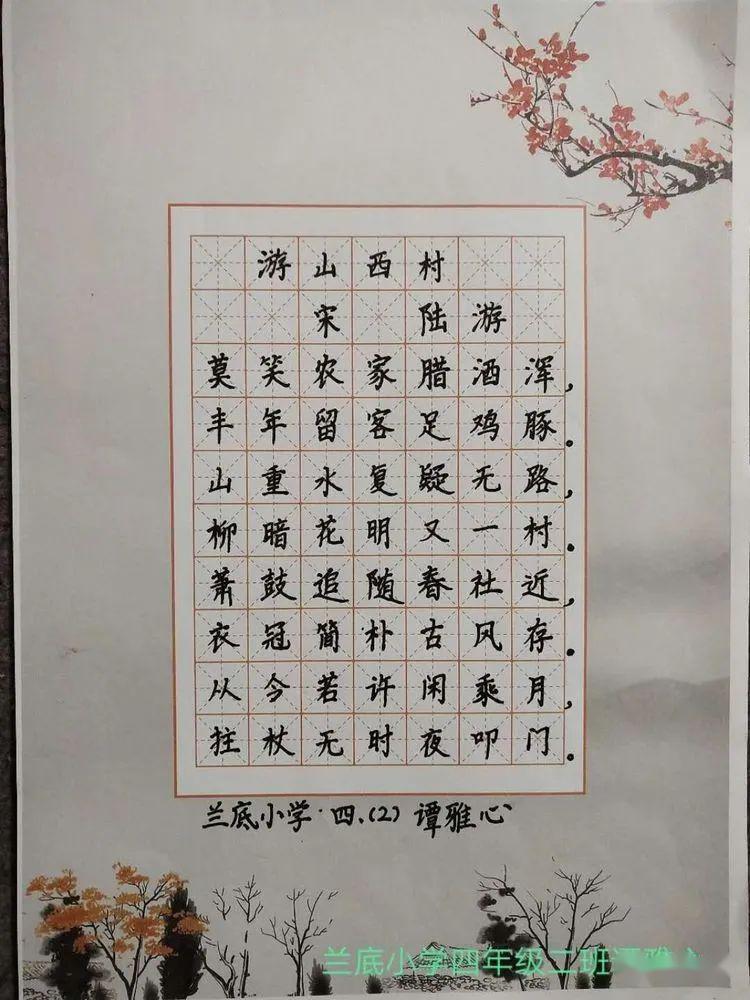 游山西村
宋 陆游
莫笑农家腊酒浑，
丰年留客足鸡豚。
山重水复疑无路，
柳暗花明又一村。
萧鼓追随春社近，
衣冠简朴古风存。
从今若许闲乘月，
拄杖无时夜叩门。
兰底小学·四.(2) 谭雅心
兰底小学四年级二班